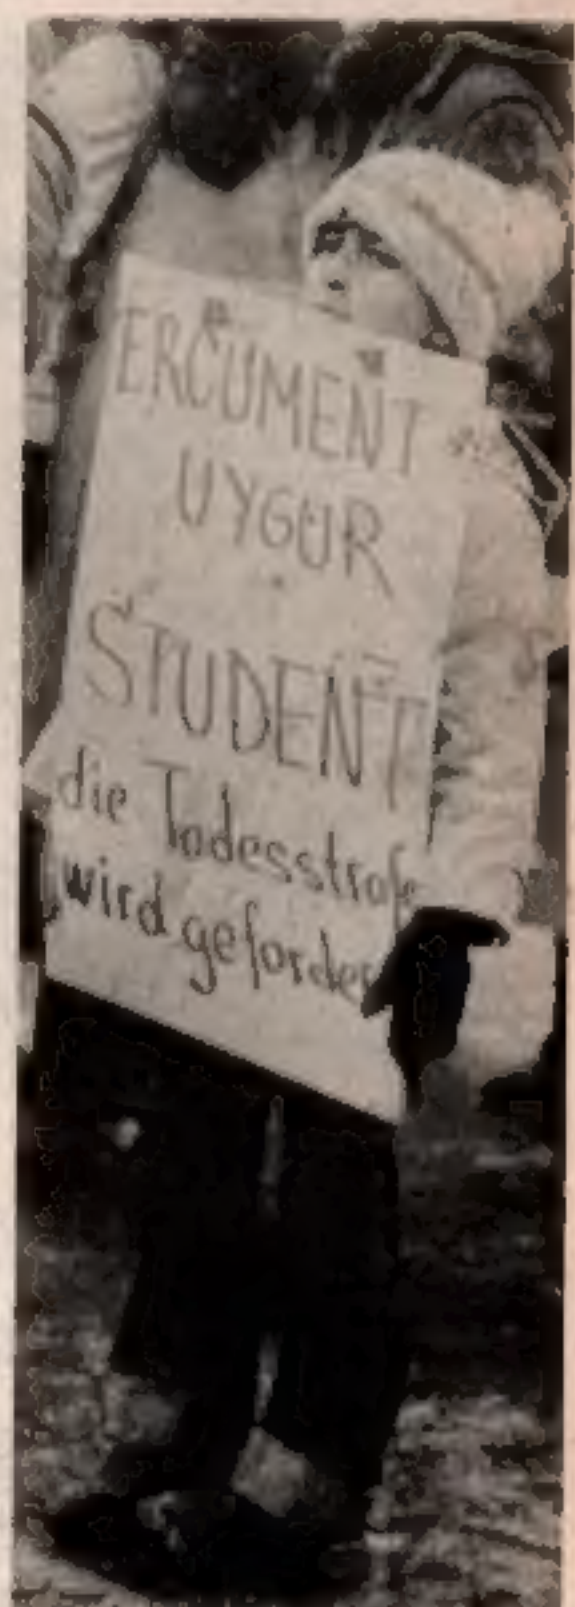 ERCUMENT
UYGUR
STUDENT
die Todesstrafe
wird gefordert